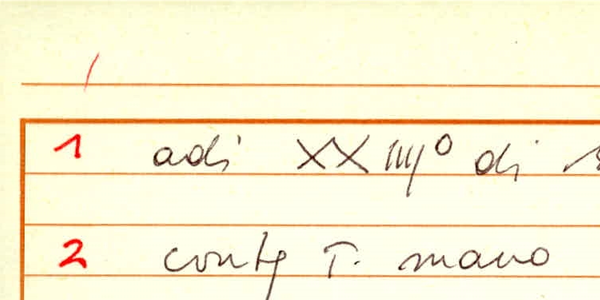 1 adi XXIIIJº di
2 contj T. mano